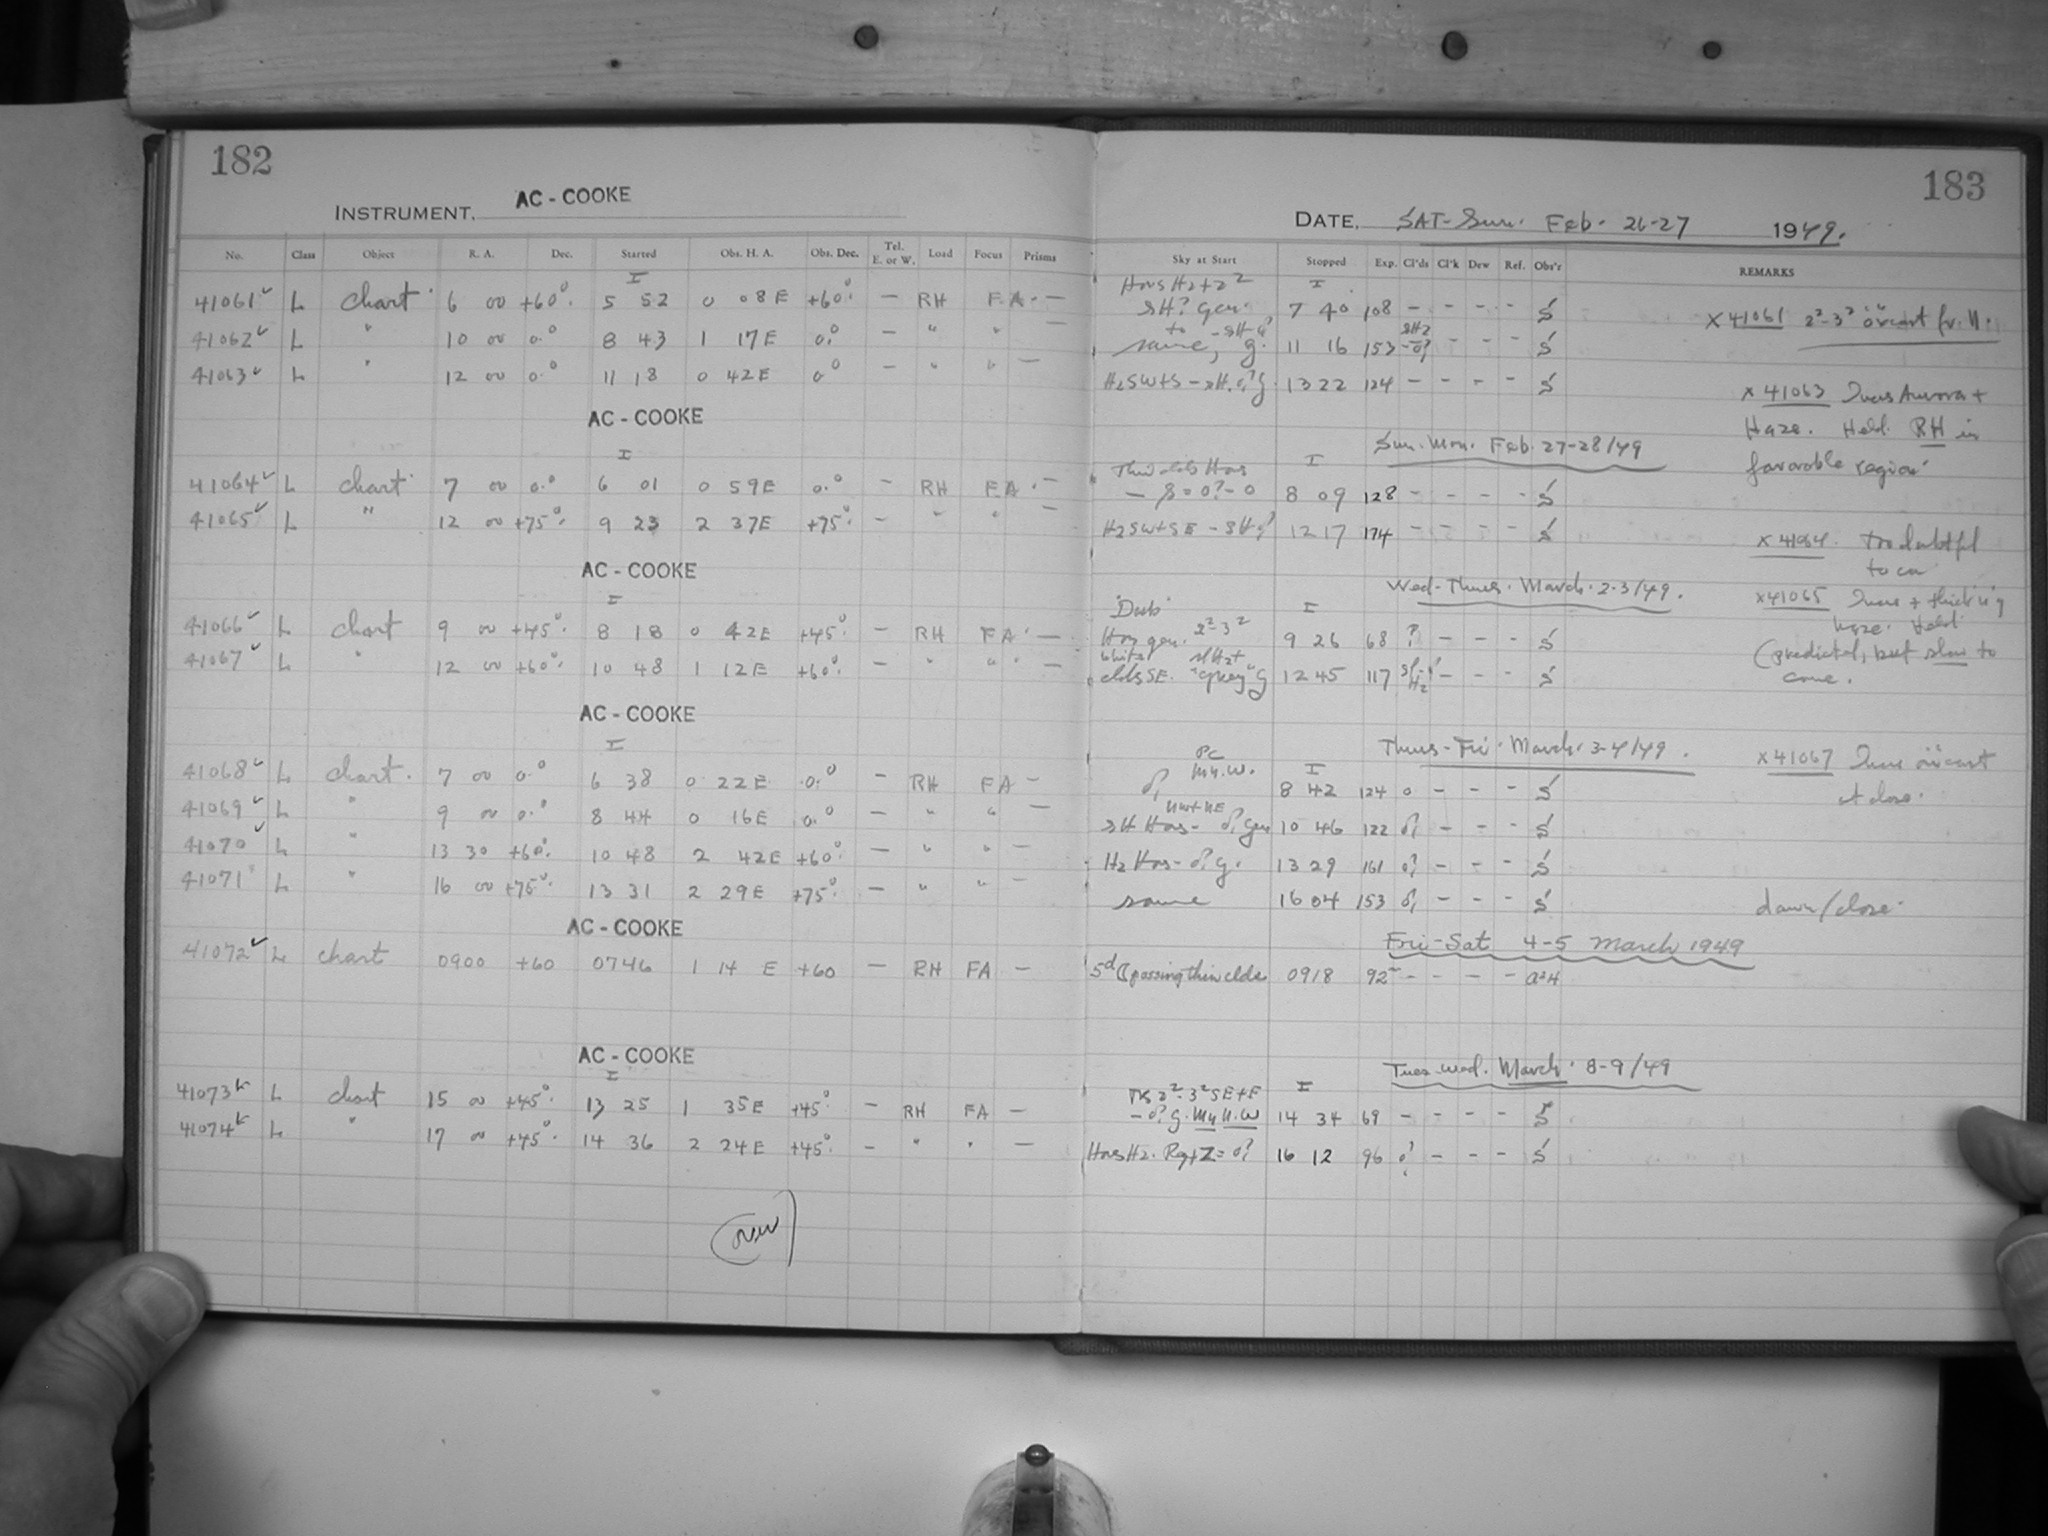 182
INSTRUMENT. AC - COOKE
No. Class Object R. A. Dec. Started Obs. H. A. Obs. Dec. Tel. E. or W. Load Focus Prisms
I
41061 L chart 6 00 +60° 5 52 0 08 E +60° — RH FA. —
41062 L " 10 00 0° 8 43 1 17E 0° — " " —
41063 L " 12 00 0° 11 18 0 42E 0° — " " —
AC - COOKE
I
41064 L chart 7 00 0° 6 01 0 59E 0° — RH FA. —
41065 L " 12 00 +75° 9 23 2 37E +75° — " " —
AC - COOKE
I
41066 L chart 9 00 +45° 8 18 0 42E +45° — RH FA. —
41067 L " 12 00 +60° 10 48 1 12E +60° — " " —
AC - COOKE
I
41068 L chart. 7 00 0° 6 38 0 22E 0° — RH FA —
41069 L " 9 00 0° 8 44 0 16E 0° — " " —
41070 L " 13 30 +60° 10 48 2 42E +60° — " " —
41071 L " 16 00 +75° 13 31 2 29E +75° — " " —
AC - COOKE
41072 L chart 0900 +60 0746 1 14 E +60 — RH FA —
AC - COOKE
I
41073 L chart 15 00 +45° 13 25 1 35E +45° — RH FA —
41074 L " 17 00 +45° 14 36 2 24E +45° — " " —
183
DATE. SAT-Sun. Feb. 26-27 1949.
Sky at Start Stopped Exp. Cl'ds Cl'k Dew Ref. Obs'r REMARKS
I
7 40 108 — - - - S
x 41061
same, g. 11 16 153 - - - S
13 22 124 - - - - S
x 41063 Aurora +
Haze. Held RH in
favorable region
Sun. Mon. Feb. 27-28/49
I
8 09 128 - - - - S
H2 SW+SE 12 17 174 - - - - S
x 41064
Wed-Thurs. March. 2-3/49.
I
9 26 68 ? - - - S
x 41065 + thick'g
haze. Held
(predicted, but slow to
come.
clds SE. "grey" g 12 45 117 - - - S
Thurs-Fri. March. 3-4/49.
I
8 42 124 0 - - - S
x 41067
at close.
10 46 122 - - - S
13 29 161 - - - S
same 16 04 153 - - - S
dawn/close.
Fri-Sat 4-5 March 1949
5d ( passing thin clds 0918 92 - - - -
Tues-Wed. March. 8-9/49
I
14 34 69 - - - - S
16 12 96 - - - S